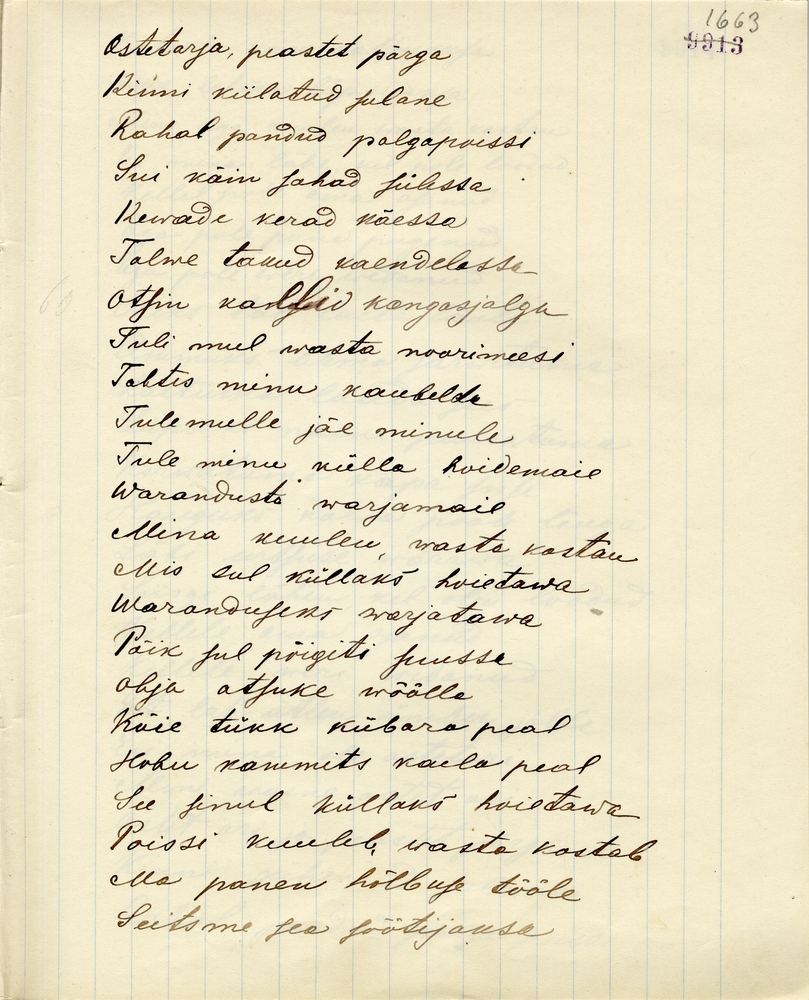 1663
9913
Ostetarja, peastet pärga
Kinni kiilatud sulane
Rahal pandud palgapoissi
Sui käin sahad sülessa
Kewade kerad käessa
Talwe takud kaendelassa
Otsin kallid kangasjalgu
Tuli mul wasta noorimeesi
Tahtis minu kaubelda
Tule mulle jäe minule
Tule minu külla hoidemaie
Warandusta warjamaie
Mina kuulen, wasta kostan
Mis sul küllaks hoietawa
Waranduseks warjatawa
Päik sul põigiti suussa
Ohja otsuke wöölla
Köie tükk kübara peal
Hobu kammits kaela peal
See sinul küllaks hoietawa
Poissi kuuleb, wasta kostab
Ma panen hõlbuse tööle
Seitsme sea söötijaksa